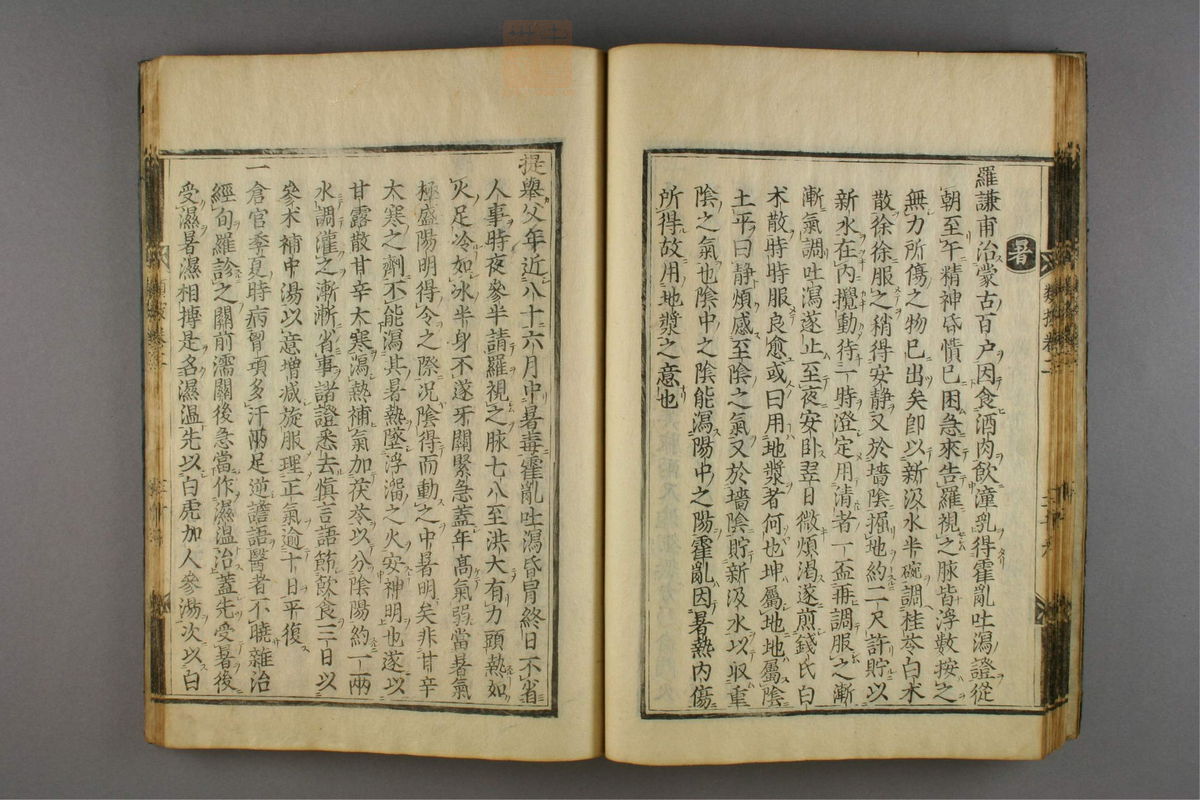 暑
羅謙甫治蒙古百户因食酒肉飲潼乳得霍亂吐瀉證從
朝至午精神昏憒已困急來告羅視之脉皆浮數按之
無力所傷之物已出矣卽以新汲水半碗調桂苓白术
散徐徐服之稍得安静又於墻陰掘地約二尺許貯以
新水在内攪動待一時澄定用清者一盃再調服之漸
漸氣調吐瀉遂止至夜安卧翌日微煩渴遂煎錢氏白
术散時時服良愈或曰用地漿者何也坤屬地地屬陰
土平曰静煩感至陰之氣又於墻陰貯新汲水以収重
陰之氣也陰中之陰能瀉陽中之陽霍亂因暑熱内傷
所得故用地漿之意也
提舉父年近八十六月中暑毒霍亂吐瀉昏冒終日不省
人事時夜參半請羅視之脉七八至洪大有力頭熱如
火足冷如氷半身不遂牙關緊急蓋年髙氣弱當暑氣
極盛陽明得令之際况陰得而動之中暑明矣非甘辛
大寒之劑不能瀉其暑熱墜浮溜之火安神明也遂以
甘露散甘辛大寒瀉熱補氣加茯苓以分陰陽約一兩
水調灌之漸漸省事諸證悉去慎言語節飲食三日以
參术補中湯以意增减旋服理正氣逾十日平復
一倉官季夏時病胷項多汗兩足逆譫語醫者不曉雜治
經旬羅診之關前濡關後急當作濕温治蓋先受暑後
受濕暑濕相搏是名濕温先以白虎加人參湯次以白